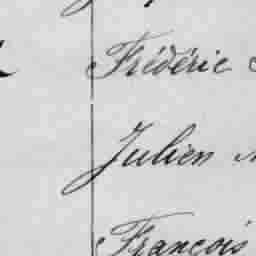 Frédéric
Julien
François